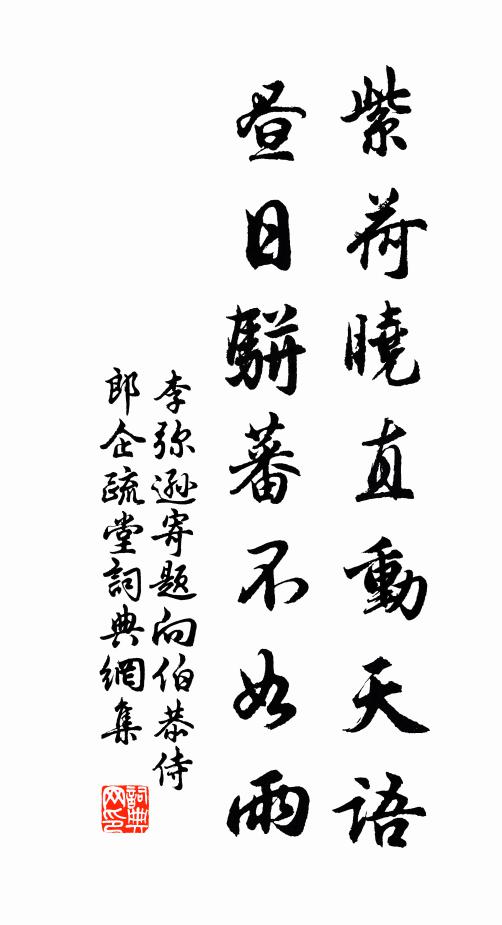 紫荷曉直動天語
昼日駢蕃不如雨
李弥遜寄題向伯恭侍
郎企疏堂詞典網集
詞典
网印